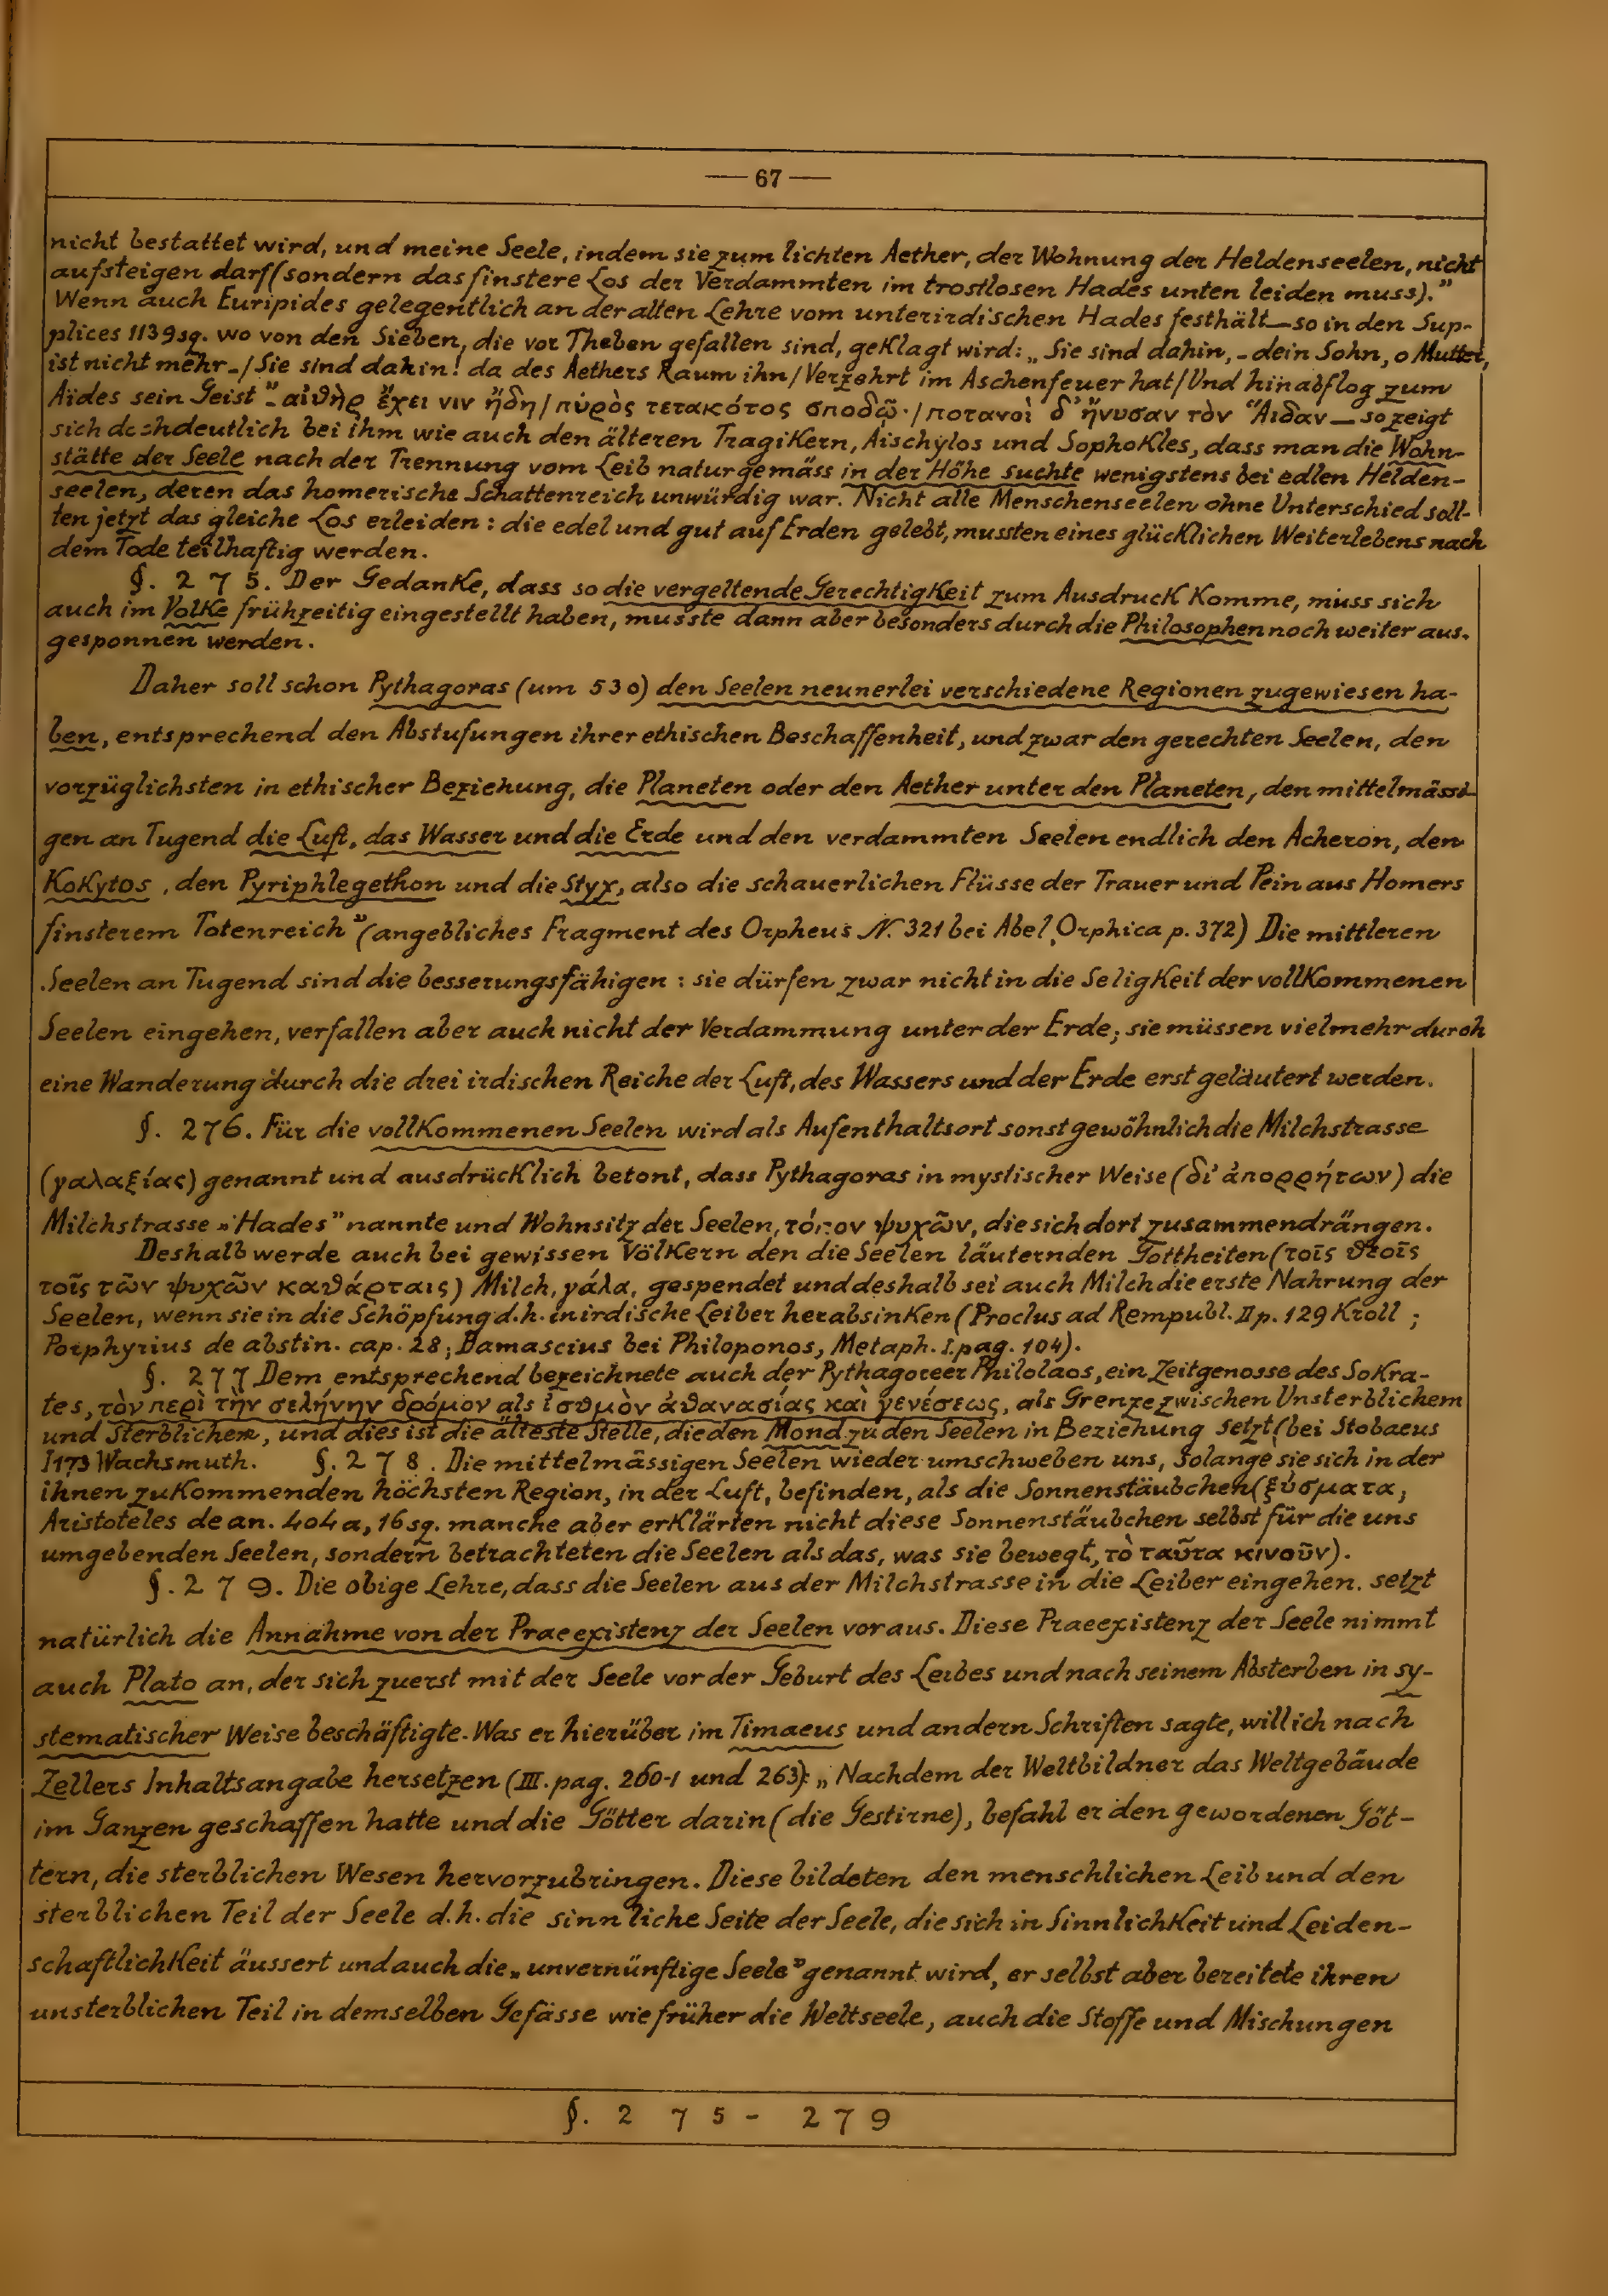 — 67 —
nicht bestattet wird, und meine Seele, indem sie zum lichten Aether, der Wohnung der Heldenseelen, nicht
aufsteigen darf (sondern das finstere Los der Verdammten im trostlosen Hades unten leiden muss)."
Wenn auch Euripides gelegentlich an der alten Lehre vom unterirdischen Hades festhält — so in den Sup-
plices 1139 sg. wo von den Sieben, die vor Theben gefallen sind, geklagt wird: „Sie sind dahin, - dein Sohn, o Mutter,
ist nicht mehr - / Sie sind dahin! da des Aethers Raum ihn / Verzehrt im Aschenfeuer hat / Und hinabflog zum
Aïdes sein Geist" - αἰθὴρ ἔχει νιν ἤδη / πυρὸς τετακότος σποδῷ· / ποτανοὶ δ' ἤνυσαν τὸν Ἅιδαν — so zeigt
sich doch deutlich bei ihm wie auch den älteren Tragikern, Aischylos und Sophokles, dass man die Wohn-
stätte der Seele nach der Trennung vom Leib naturgemäss in der Höhe suchte wenigstens bei edlen Helden-
seelen, deren das homerische Schattenreich unwürdig war. Nicht alle Menschenseelen ohne Unterschied soll-
ten jetzt das gleiche Los erleiden: die edel und gut auf Erden gelebt, mussten eines glücklichen Weiterlebens nach
dem Tode teilhaftig werden.
§. 275. Der Gedanke, dass so die vergeltende Gerechtigkeit zum Ausdruck komme, muss sich
auch im Volke frühzeitig eingestellt haben, musste dann aber besonders durch die Philosophen noch weiter aus-
gesponnen werden.
Daher soll schon Pythagoras (um 530) den Seelen neunerlei verschiedene Regionen zugewiesen ha-
ben, entsprechend den Abstufungen ihrer ethischen Beschaffenheit, und zwar den gerechten Seelen, den
vorzüglichsten in ethischer Beziehung, die Planeten oder den Aether unter den Planeten, den mittelmässi-
gen an Tugend die Luft, das Wasser und die Erde und den verdammten Seelen endlich den Acheron, den
Kokytos, den Pyriphlegethon und die Styx, also die schauerlichen Flüsse der Trauer und Pein aus Homers
finsterem Totenreich" (angebliches Fragment des Orpheus N. 321 bei Abel, Orphica p. 372) Die mittleren
Seelen an Tugend sind die besserungsfähigen: sie dürfen zwar nicht in die Seligkeit der vollkommenen
Seelen eingehen, verfallen aber auch nicht der Verdammung unter der Erde; sie müssen vielmehr durch
eine Wanderung durch die drei irdischen Reiche der Luft, des Wassers und der Erde erst geläutert werden.
§. 276. Für die vollkommenen Seelen wird als Aufenthaltsort sonst gewöhnlich die Milchstrasse
(γαλαξίας) genannt und ausdrücklich betont, dass Pythagoras in mystischer Weise (δι' ἀπορρήτων) die
Milchstrasse „Hades" nannte und Wohnsitz der Seelen, τόπον ψυχῶν, die sich dort zusammendrängen.
Deshalb werde auch bei gewissen Völkern den die Seelen läuternden Gottheiten (τοῖς θεοῖς
τοῖς τῶν ψυχῶν καθάρταις) Milch, γάλα, gespendet und deshalb sei auch Milch die erste Nahrung der
Seelen, wenn sie in die Schöpfung d.h. in irdische Leiber herabsinken (Proclus ad Rempubl. II p. 129 Kroll;
Porphyrius de abstin. cap. 28; Damascius bei Philoponos, Metaph. I. pag. 104).
§. 277 Dem entsprechend bezeichnete auch der Pythagoreer Philolaos, ein Zeitgenosse des Sokra-
tes, τὸν περὶ τὴν σελήνην δρόμον als ἰσθμὸν ἀθανασίας καὶ γενέσεως, als Grenze zwischen Unsterblichem
und Sterblichem, und dies ist die älteste Stelle, die den Mond zu den Seelen in Beziehung setzt (bei Stobaeus
I 173 Wachsmuth. §. 278. Die mittelmässigen Seelen wieder umschweben uns, solange sie sich in der
ihnen zukommenden höchsten Region, in der Luft, befinden, als die Sonnenstäubchen (ξύσματα;
Aristoteles de an. 404 a, 16 sg. manche aber erklärten nicht diese Sonnenstäubchen selbst für die uns
umgebenden Seelen, sondern betrachteten die Seelen als das, was sie bewegt, τὸ ταῦτα κινοῦν).
§. 279. Die obige Lehre, dass die Seelen aus der Milchstrasse in die Leiber eingehen. setzt
natürlich die Annahme von der Praeexistenz der Seelen voraus. Diese Praeexistenz der Seele nimmt
auch Plato an, der sich zuerst mit der Seele vor der Geburt des Leibes und nach seinem Absterben in sy-
stematischer Weise beschäftigte. Was er hierüber im Timaeus und andern Schriften sagte, will ich nach
Zellers Inhaltsangabe hersetzen (III. pag. 260-1 und 263): „Nachdem der Weltbildner das Weltgebäude
im Ganzen geschaffen hatte und die Götter darin (die Gestirne), befahl er den gewordenen Göt-
tern, die sterblichen Wesen hervorzubringen. Diese bildeten den menschlichen Leib und den
sterblichen Teil der Seele d.h. die sinnliche Seite der Seele, die sich in Sinnlichkeit und Leiden-
schaftlichkeit äussert und auch die „unvernünftige Seele" genannt wird, er selbst aber bereitete ihren
unsterblichen Teil in demselben Gefässe wie früher die Weltseele, auch die Stoffe und Mischungen
§. 275 - 279